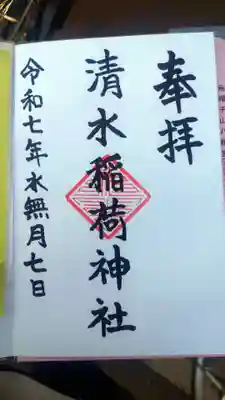 奉拝
清水稲荷神社
令和七年水無月七日